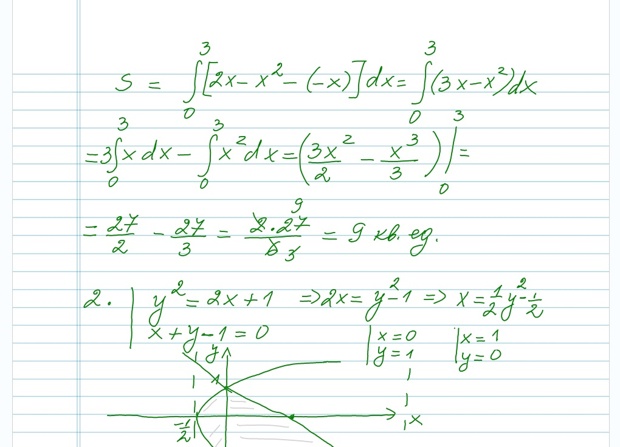 S = ∫₀³ [2x − x² − (−x)] dx = ∫₀³ (3x − x²) dx
= 3∫₀³ x dx − ∫₀³ x² dx = (3x²/2 − x³/3) |₀³ =
= 27/2 − 27/3 = 2·27/6 3 9 = 9 кв. ед.
2. | y² = 2x + 1 ⇒ 2x = y² − 1 ⇒ x = 1/2 y² − 1/2
| x + y − 1 = 0 | x = 0 | x = 1
| y = 1 | y = 0
y
1
−1/2
1 x